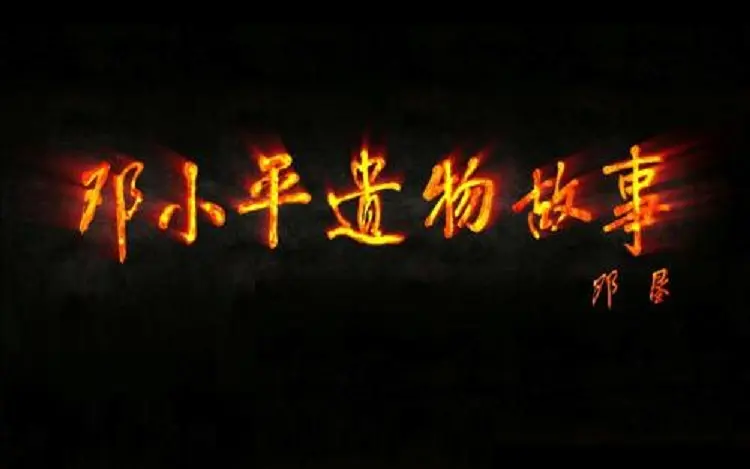 邓小平遺物故事
邓垦